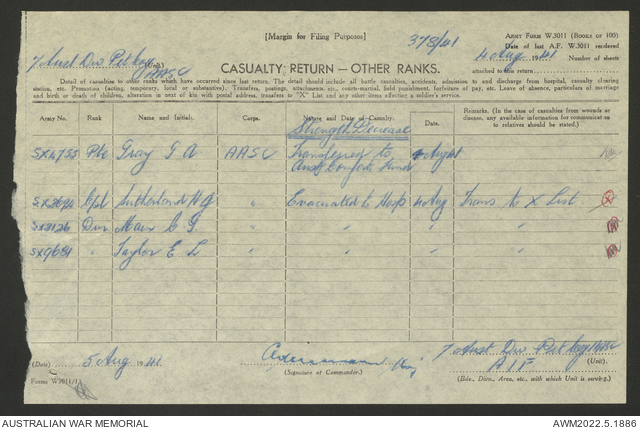 [Margin for Filing Purposes]
378/41
ARMY FORM W.3011 (BOOKS OF 100)
Date of last A.F. W.3011 rendered
7 Aust Div Pet Coy (Unit).
AASC
4 Aug 1941
Number of sheets
attached to this return
CASUALTY RETURN — OTHER RANKS.
Detail of casualties to other ranks which have occurred since last return. The detail should include all battle casualties, accidents, admission to and discharge from hospital, casualty clearing
station, etc. Promotion (acting, temporary, local or substantive). Transfers, postings, attachments, etc., courts-martial, field punishment, forfeiture of pay, etc. Leave of absence, particulars of marriage
and birth or death of children, alteration in next of kin with postal address, transfers to "X" List and any other items affecting a soldier's service.
Army No. Rank Name and Initial. Corps. Nature and Date of Casualty. Date. Remarks. (In the case of casualties from wounds or disease, any available information for communication to relatives should be stated.)
Strength Decrease
SX4755 Pte Gray G A AASC Transferred to
Aust Comforts Fund
Cpl Sutherland H G " Evacuated to Hosp Aug Trans to X List
SX3126 Dvr Mair C G. " " " "
SX9631 " Taylor E L " " " "
(Date) 5 Aug 1941
(Signature of Commander.) Maj
7 Aust Div Pet Coy AASC
AIF (Unit).
(Bde., Divn., Area, etc., with which Unit is serving.)
Forms W3011/1
AUSTRALIAN WAR MEMORIAL
AWM2022.5.1886